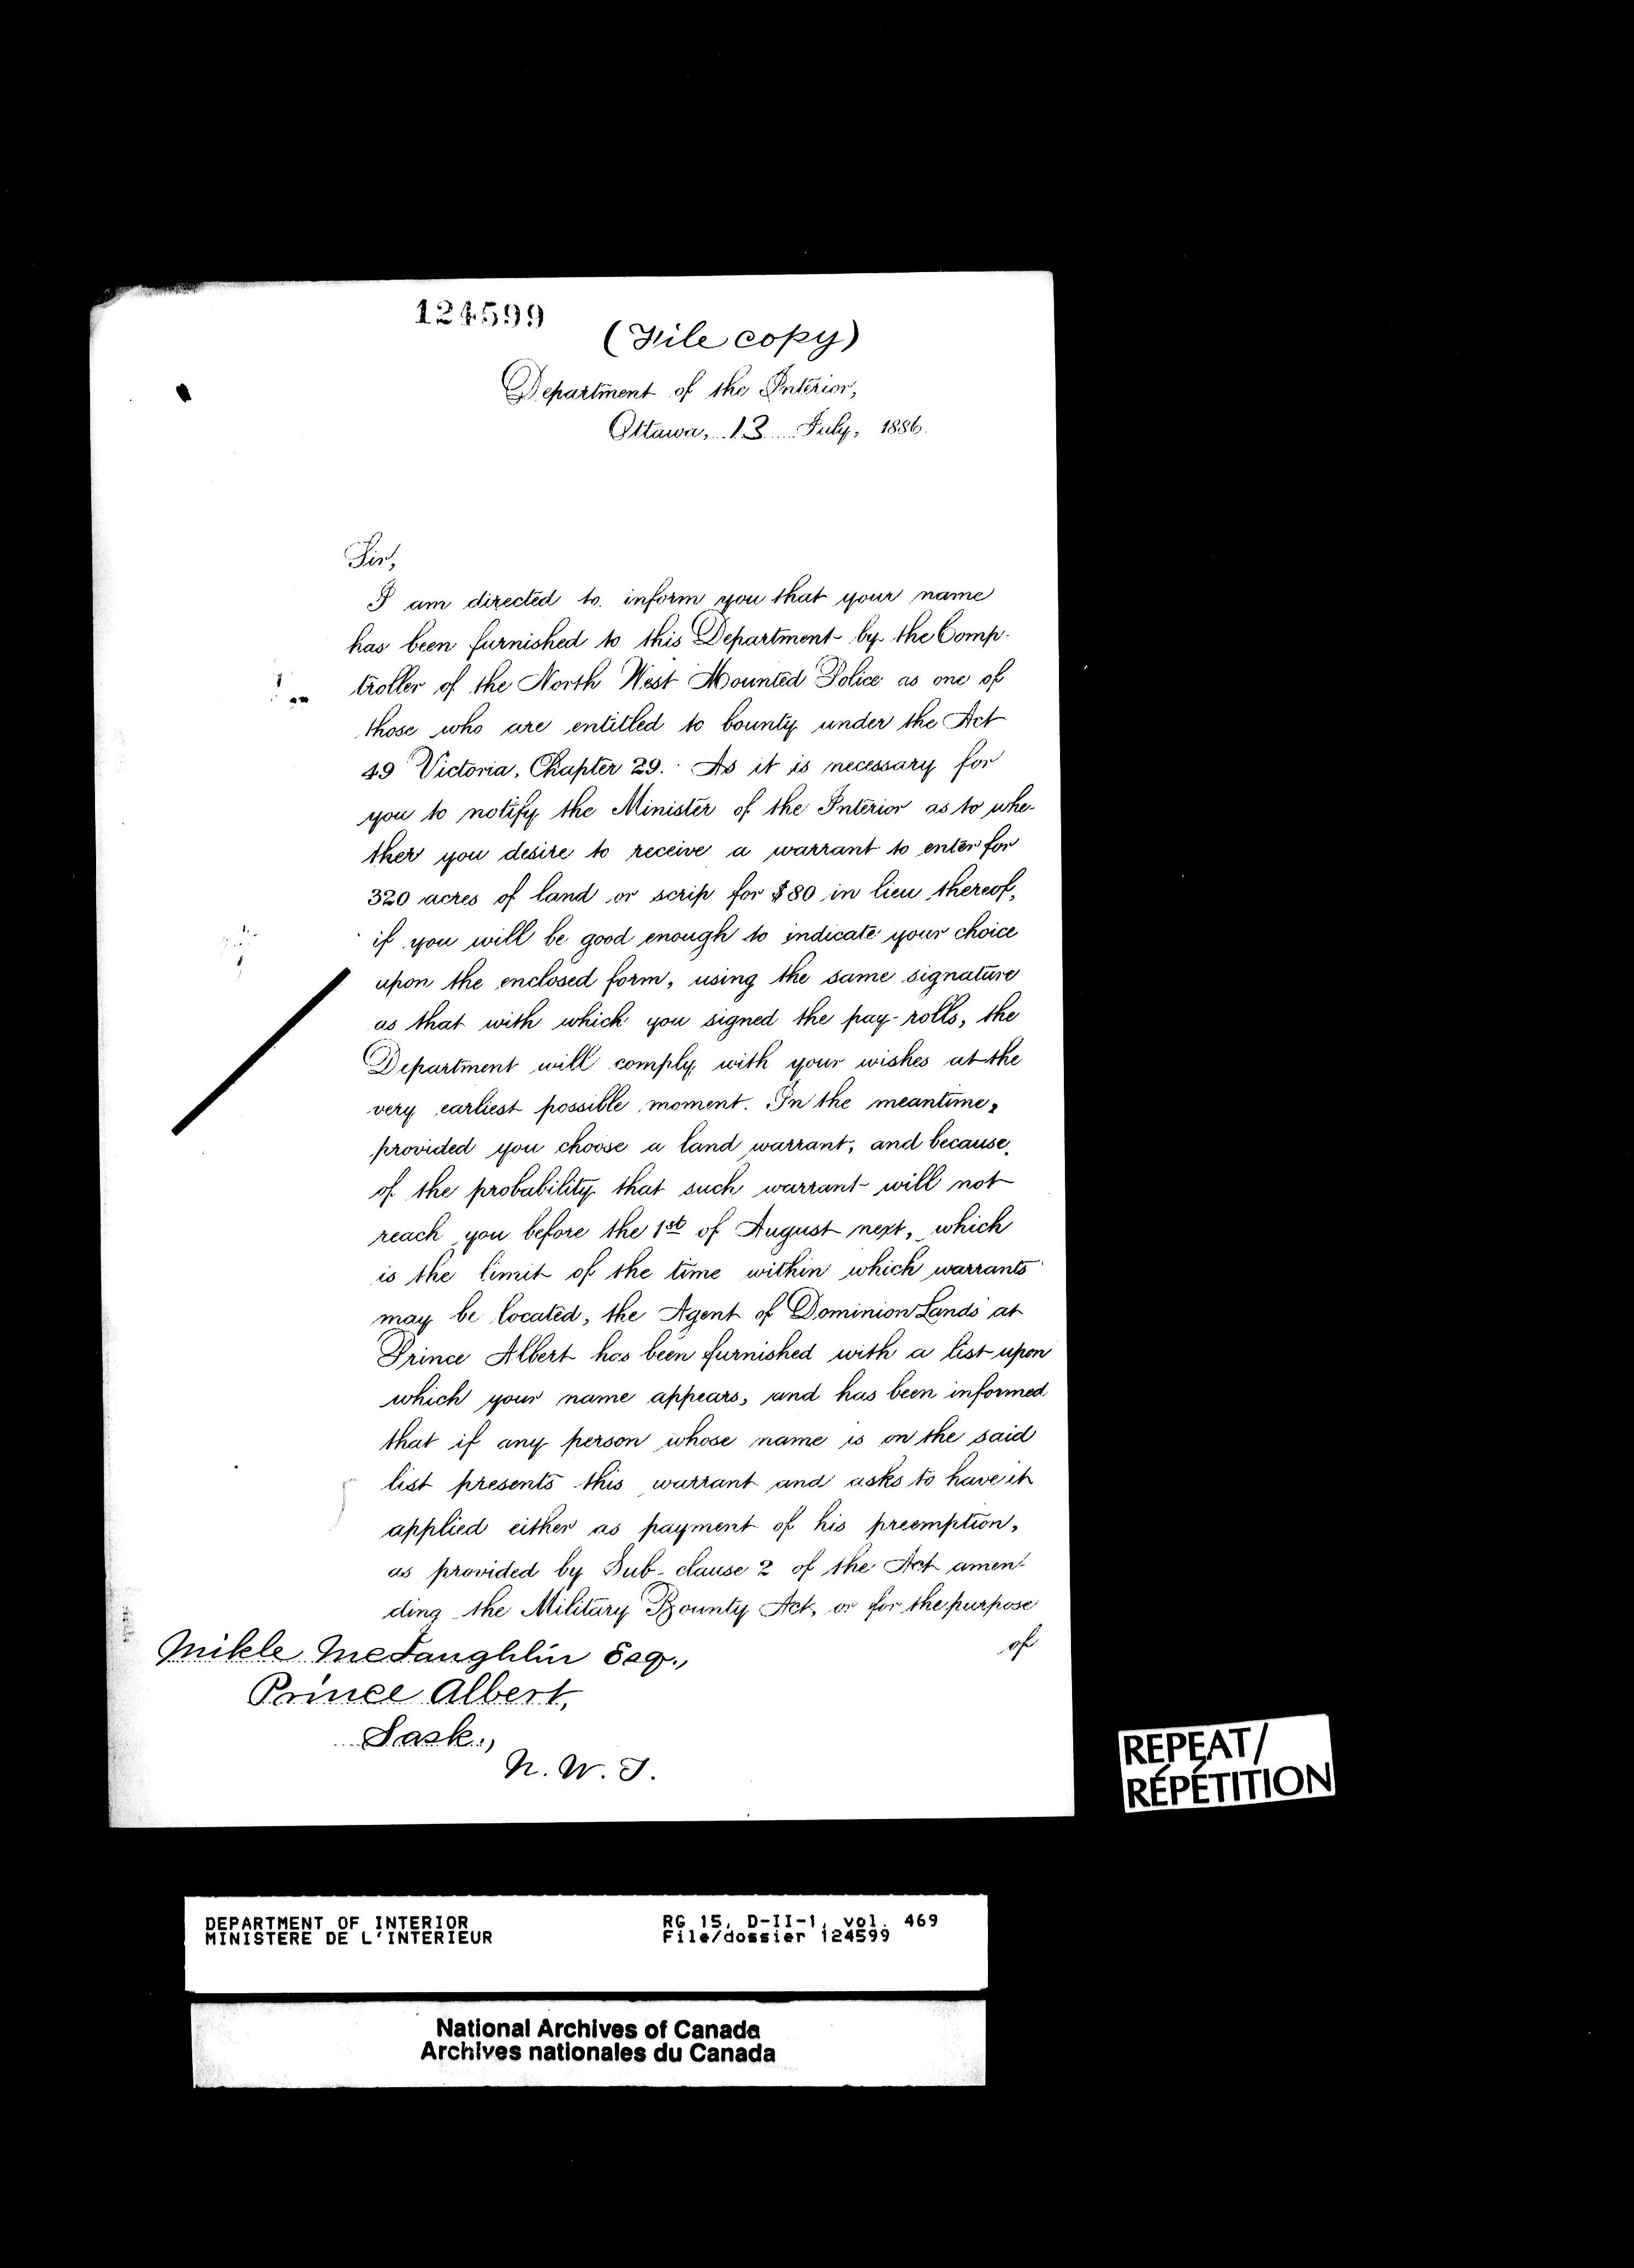 124599
(File copy)
Department of the Interior,
Ottawa, 13 July, 1886.
Sir,
I am directed to inform you that your name
has been furnished to this Department by the Comp-
troller of the North West Mounted Police as one of
those who are entitled to bounty under the Act
49 Victoria, Chapter 29. As it is necessary for
you to notify the Minister of the Interior as to whe-
ther you desire to receive a warrant to enter for
320 acres of land or scrip for $80 in lieu thereof,
if you will be good enough to indicate your choice
upon the enclosed form, using the same signature
as that with which you signed the pay-rolls, the
Department will comply with your wishes at the
very earliest possible moment. In the meantime,
provided you choose a land warrant, and because
of the probability that such warrant will not
reach you before the 1st of August next, which
is the limit of the time within which warrants
may be located, the Agent of Dominion Lands at
Prince Albert has been furnished with a list upon
which your name appears, and has been informed
that if any person whose name is on the said
list presents this warrant and asks to have it
applied either as payment of his preemption,
as provided by Sub-clause 2 of the Act amen-
ding the Military Bounty Act, or for the purpose
of
Mikle McLaughlin Esq.,
Prince Albert,
Sask.,
N. W. T.
REPEAT/
RÉPÉTITION
DEPARTMENT OF INTERIOR RG 15, D-II-1, vol. 469
MINISTERE DE L'INTERIEUR File/dossier 124599
National Archives of Canada
Archives nationales du Canada